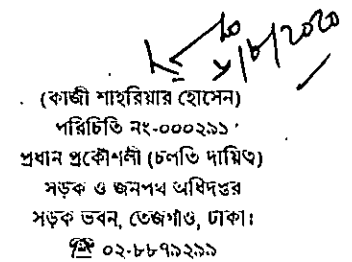 (কাজী শাহরিয়ার হোসেন)
পরিচিতি নং-০০০২৯১
প্রধান প্রকৌশলী (চলতি দায়িত্ব)
সড়ক ও জনপথ অধিদপ্তর
সড়ক ভবন, তেজগাঁও, ঢাকা।
☎ ০২-৮৮৭৯২৯৯